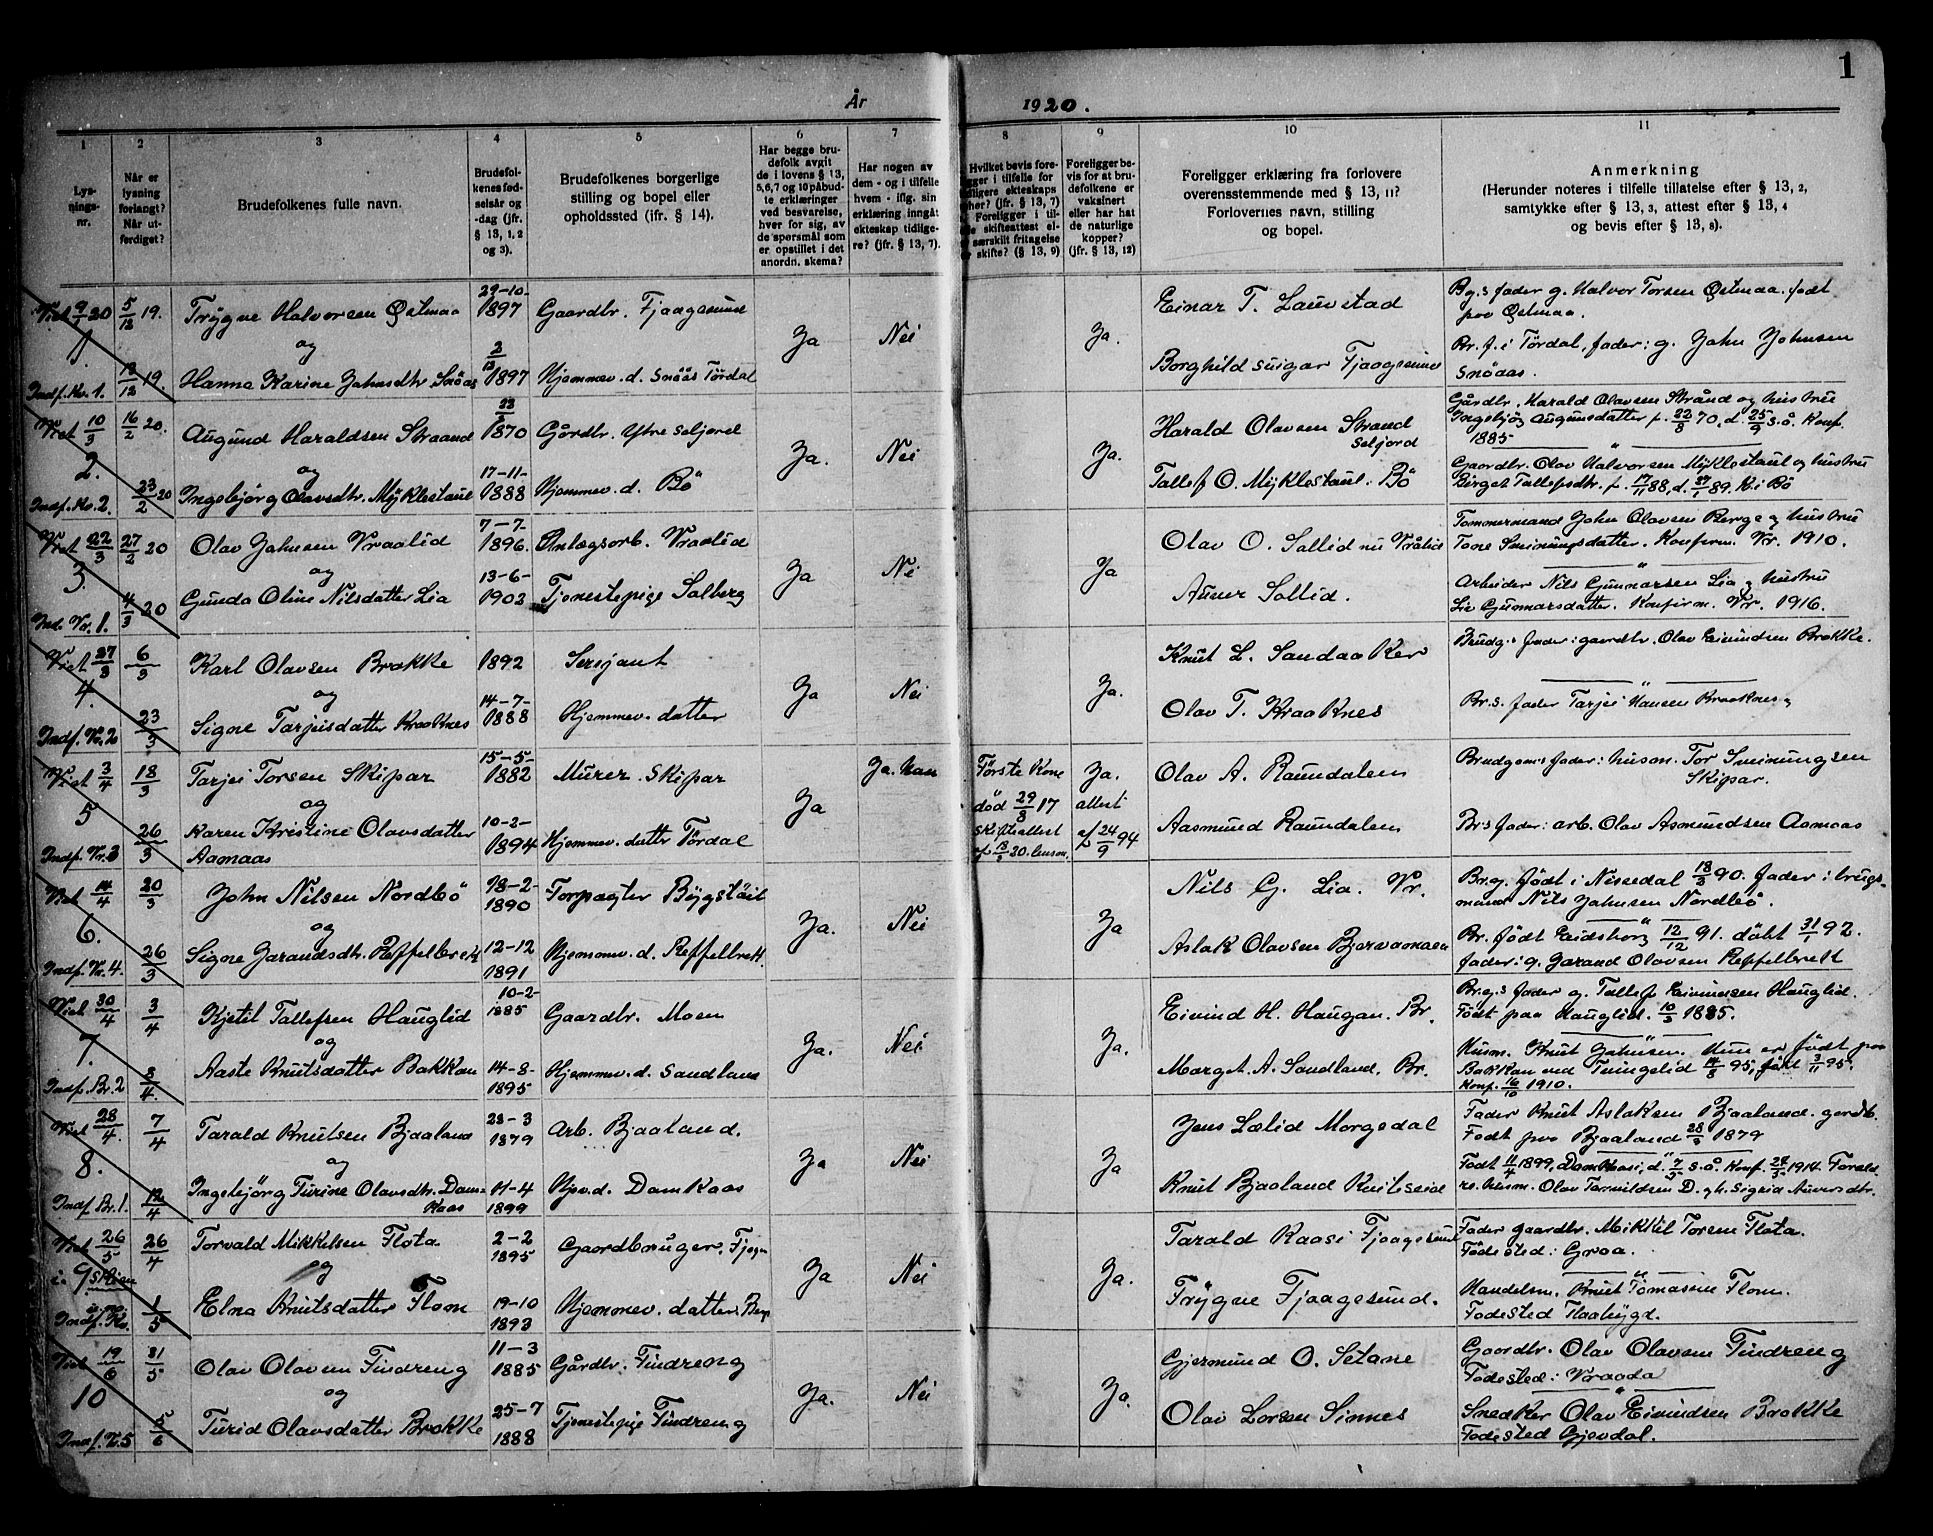 1
År 1920.
1 2 3 4 5 6 7 8 9 10 11
Lysningsnr.
Når er lysning forlangt? Når utferdiget?
Brudefolkenes fulle navn.
Brudefolkenes fødselsår og -dag (jfr. § 13, 1, 2 og 3).
Brudefolkenes borgerlige stilling og bopel eller opholdssted (ifr. § 14).
Har begge brudefolk avgit de i lovens § 13, 5,6,7 og 10 påbudte erklæringer ved besvarelse, hver for sig, av de spørsmål som er opstillet i det anordn. skema?
Har nogen av dem - og i tilfelle hvem - iflg. sin erklæring inngåt ekteskap tidligere? (jfr. § 13, 7).
Hvilket bevis foregger i tilfelle for dligere ekteskaps her? (jfr. § 13, 7) Foreligger i tilde skifteattest elsærskilt fritagelse r skifte? (§ 13, 9)
Foreligger bevis for at brudefolkene er vaksinert eller har hat de naturlige kopper? (jfr. § 13, 12)
Foreligger erklæring fra forlovere overensstemmende med § 13, 11? Forlovernes navn, stilling og bopel.
Anmerkning (Herunder noteres i tilfelle tillatelse efter § 13, 2, samtykke efter § 13, 3, attest efter § 13, 4 og bevis efter § 13, 8).
Viet 9/1 20 5/12 19. Trygve Halvorsen Østmaa 29-10-1897 Gaardbr. Fjaagesund Einar T. Lauvstad Bg.s fader g. Halvor Torsen Østmaa. født paa Østmaa.
1. og Ja Nei Ja.
Indf. Kv. 1. 12/12 19. Hanna Karine Jahnsdtr Snöas 2/12 1897 Hjemmev. d. Snöås Tördal Borghild Fjaagesund Br. f. i Tördal, fader: g. John Johnsen Snöaas.
Viet 10/3 16/2 20. Augund Haraldsen Straand 1870 Gårdbr. Ytre Seljord Harald Olavsen Strand Seljord Gårdbr. Harald Olavsen Strånd og hustru Ingebjøg Augunsdatter f. 22/8 70, d. 25/9 s.å. Konf. 1885
2. og Ja. Nei Ja.
Indf. Kv. 2. 23/2 20 Ingebjörg Olavsdtr. Myklestaul 17-11-1888 Hjemmev. d. Bö Tallef O. Myklestaul. Bö Gaardbr. Olav Halvorsen Myklestaul og hustru Birget Tallefsdtr. f. 17/11 88, d. 89. K. i Bö
Viet 22/3 27/2 20 Olav Jahnsen Vraalid 7-7-1896. Anlægsarb. Vraalid Olav O. Sollid nu Vrålid Tømmermand John Olavsen Berge og hustru Tone Sveinungsdatter. Konfirm. Vr. 1910.
3. og Ja Nei Ja
Ind. Vr. 1. 4/3 20 Gunda Oline Nilsdatter Lia 13-6-1902 Tjenestepige Solberg Auver Sollid. Arbeider Nils Gunnarsen Lia og hustru Liv Gunnarsdatter. Konfirm. Vr. 1916.
Viet 27/3 6/3 Karl Olavsen Brokke 1892 Sersjant Knut L. Sandaaker Brudg.s fader: gaardbr. Olav Eivindsen Brokke.
4. og Ja Nei Ja.
Indf. Nr. 2 23/3 Signe Tarjeisdatter Kraaknes 14-7-1888 Hjemmev. datter Olav T. Kraaknes Br.s. fader Tarjei Hansen Kraaknes
Viet 3/4 18/3 Tarjei Torsen Skipar 15-5-1882 Murer. Skipar Ja. Han Første Kone død 29/8 17 Skifteattest af 20. Ja. attest af 24/9 94 Olav A. Raundalen Brudgoms fader: husm. Tor Sveinungsen Skipar.
5 og Ja
Indf. Nr. 3 26/3 Karen Kristine Olavsdatter Aamaas 10-2-1894 Hjemmev. datter Tördal Aasmund Raundalen Br.s fader: arb. Olav Asmundsen Aamaas
Viet 14/4 20/3 John Nilsen Nordbö 18-2-1890 Forpagter Bygstöit Nils G. Lia. Vr. Br.g. født i Nissedal 18/2 90. fader: brugsmand Nils Johnsen Nordbö.
6. og Ja. Nei Ja
Indf. Nr. 4. 26/3 Signe Jarandsdtr. Reffelbrekk 12-12 1891 Hjemmev. d. Reffelbrekk. Aslak Olavsen Bjorvaamoen Br. født Eidsborg 12/12 91. döbt 31/1 92. fader: g. Jarand Olavsen Reffelbrekk
Viet 30/4 3/4 Kjetil Tallefsen Hauglid 10-2-1885 Gaardbr. Moen Eivind H. Haugan. Br. Br.g.s fader g. Tallef Eivindsen Hauglid. Født paa Hauglid. 10/3 1885.
7. og Ja. Nei. Ja.
Indf. Br. 2 8/4 Aaste Knutsdatter Bakkan 14-8-1895 Hjemmev. d. Sandland Marget A. Sandland. Br. Husm. Knut Jahnsen. Hun er født paa Bakkan ved Tveingelid 14/8 95, døbt 3/11 95. Konf. 16/10 1910.
Viet 28/4. 7/4 Tarald Knutsen Bjaaland 28-3 1879 Arb. Bjaaland. Jens Lølid Morgedal Fader Knut Aslaksen Bjaaland. gardb. Født paa Bjaaland 28/3 1879
8. og Ja Nei Ja
Indf. Br. 1. 12/4 Ingebjörg Turine Olavsdtr. Damkaas 11-4 1899 Hjv. d. Damkaas Knut Bjaaland Kviteseid Født 11/4 1899, Damkaas, d. 7/5 s.å. Konf. 24/5 1914. Foreldre. husm. Olav Tarvildsen D. gh. Sigrid Auversdtr.
Viet 26/5 i Skien 26/4 Torvald Mikkelsen Flota 2-2 1895 Gaardbruger, Tarald Kaasi Fjaagesund Fader gaardbr. Mikkil Torsen Flota. Fødested: Graa.
9 og Ja Nei Ja.
Indf. Kv. 1/5 Elna Knutsdatter Flom 19-10 1893 Hjemmev. datter. Trygve Fjaagesund. Handelsm. Knut Tomassen Flom. Fødested Flaabygd.
Viet 19/6 31/5 Olav Olavsen Tindreng 11-3 1885 Gårdbr. Tindreng Gjermund O. Setane Gaardbr. Olav Olavsen Tindreng Fødested: Vraada
10 og Ja. Nei Ja.
Indf. N. 5 5/6 Turid Olavsdatter Brokke 25-7 1888 Tjenestepige Tindreng Olav Lorsen Sinnes Snedker Olav Eivindsen Brokke Fødested Gjøvdal.